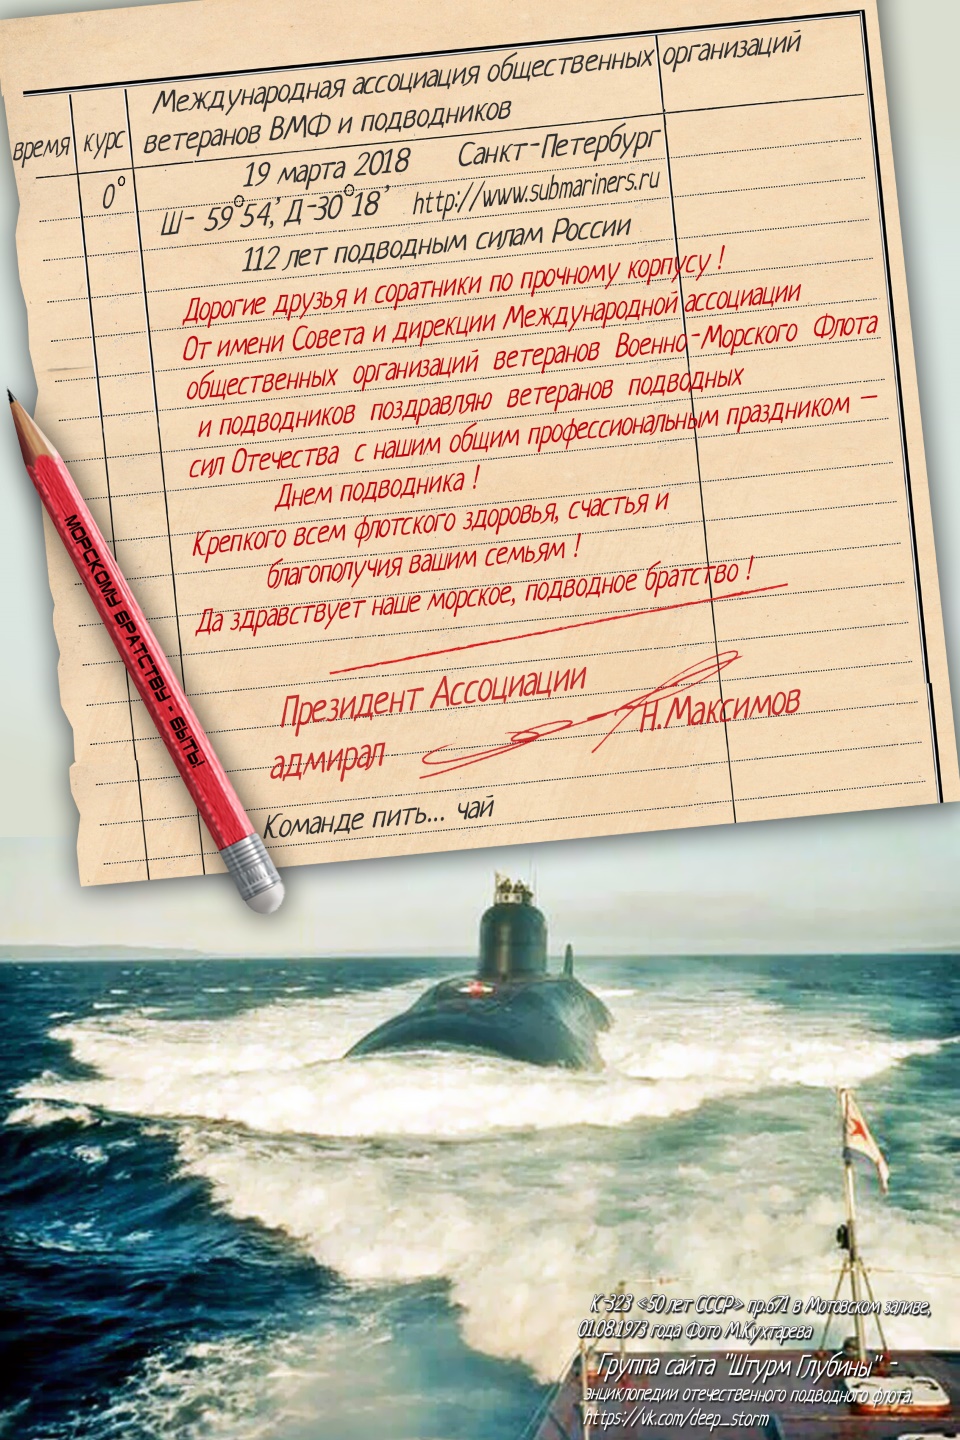 Международная ассоциация общественных организаций
ветеранов ВМФ и подводников
время курс
19 марта 2018 Санкт-Петербург
0°
Ш- 59°54,' Д-30°18' http://www.submariners.ru
112 лет подводным силам России
Дорогие друзья и соратники по прочному корпусу !
От имени Совета и дирекции Международной ассоциации
общественных организаций ветеранов Военно-Морского Флота
и подводников поздравляю ветеранов подводных
сил Отечества с нашим общим профессиональным праздником –
Днем подводника !
Крепкого всем флотского здоровья, счастья и
благополучия вашим семьям !
Да здравствует наше морское, подводное братство !
Президент Ассоциации
адмирал Н.Максимов
Команде пить... чай
МОРСКОМУ БРАТСТВУ - БЫТЬ!
К-323 «50 лет СССР» пр.671 в Мотовском заливе,
01.08.1973 года Фото М.Кухтарева
Группа сайта "Штурм Глубины" -
энциклопедии отечественного подводного флота.
https://vk.com/deep_storm